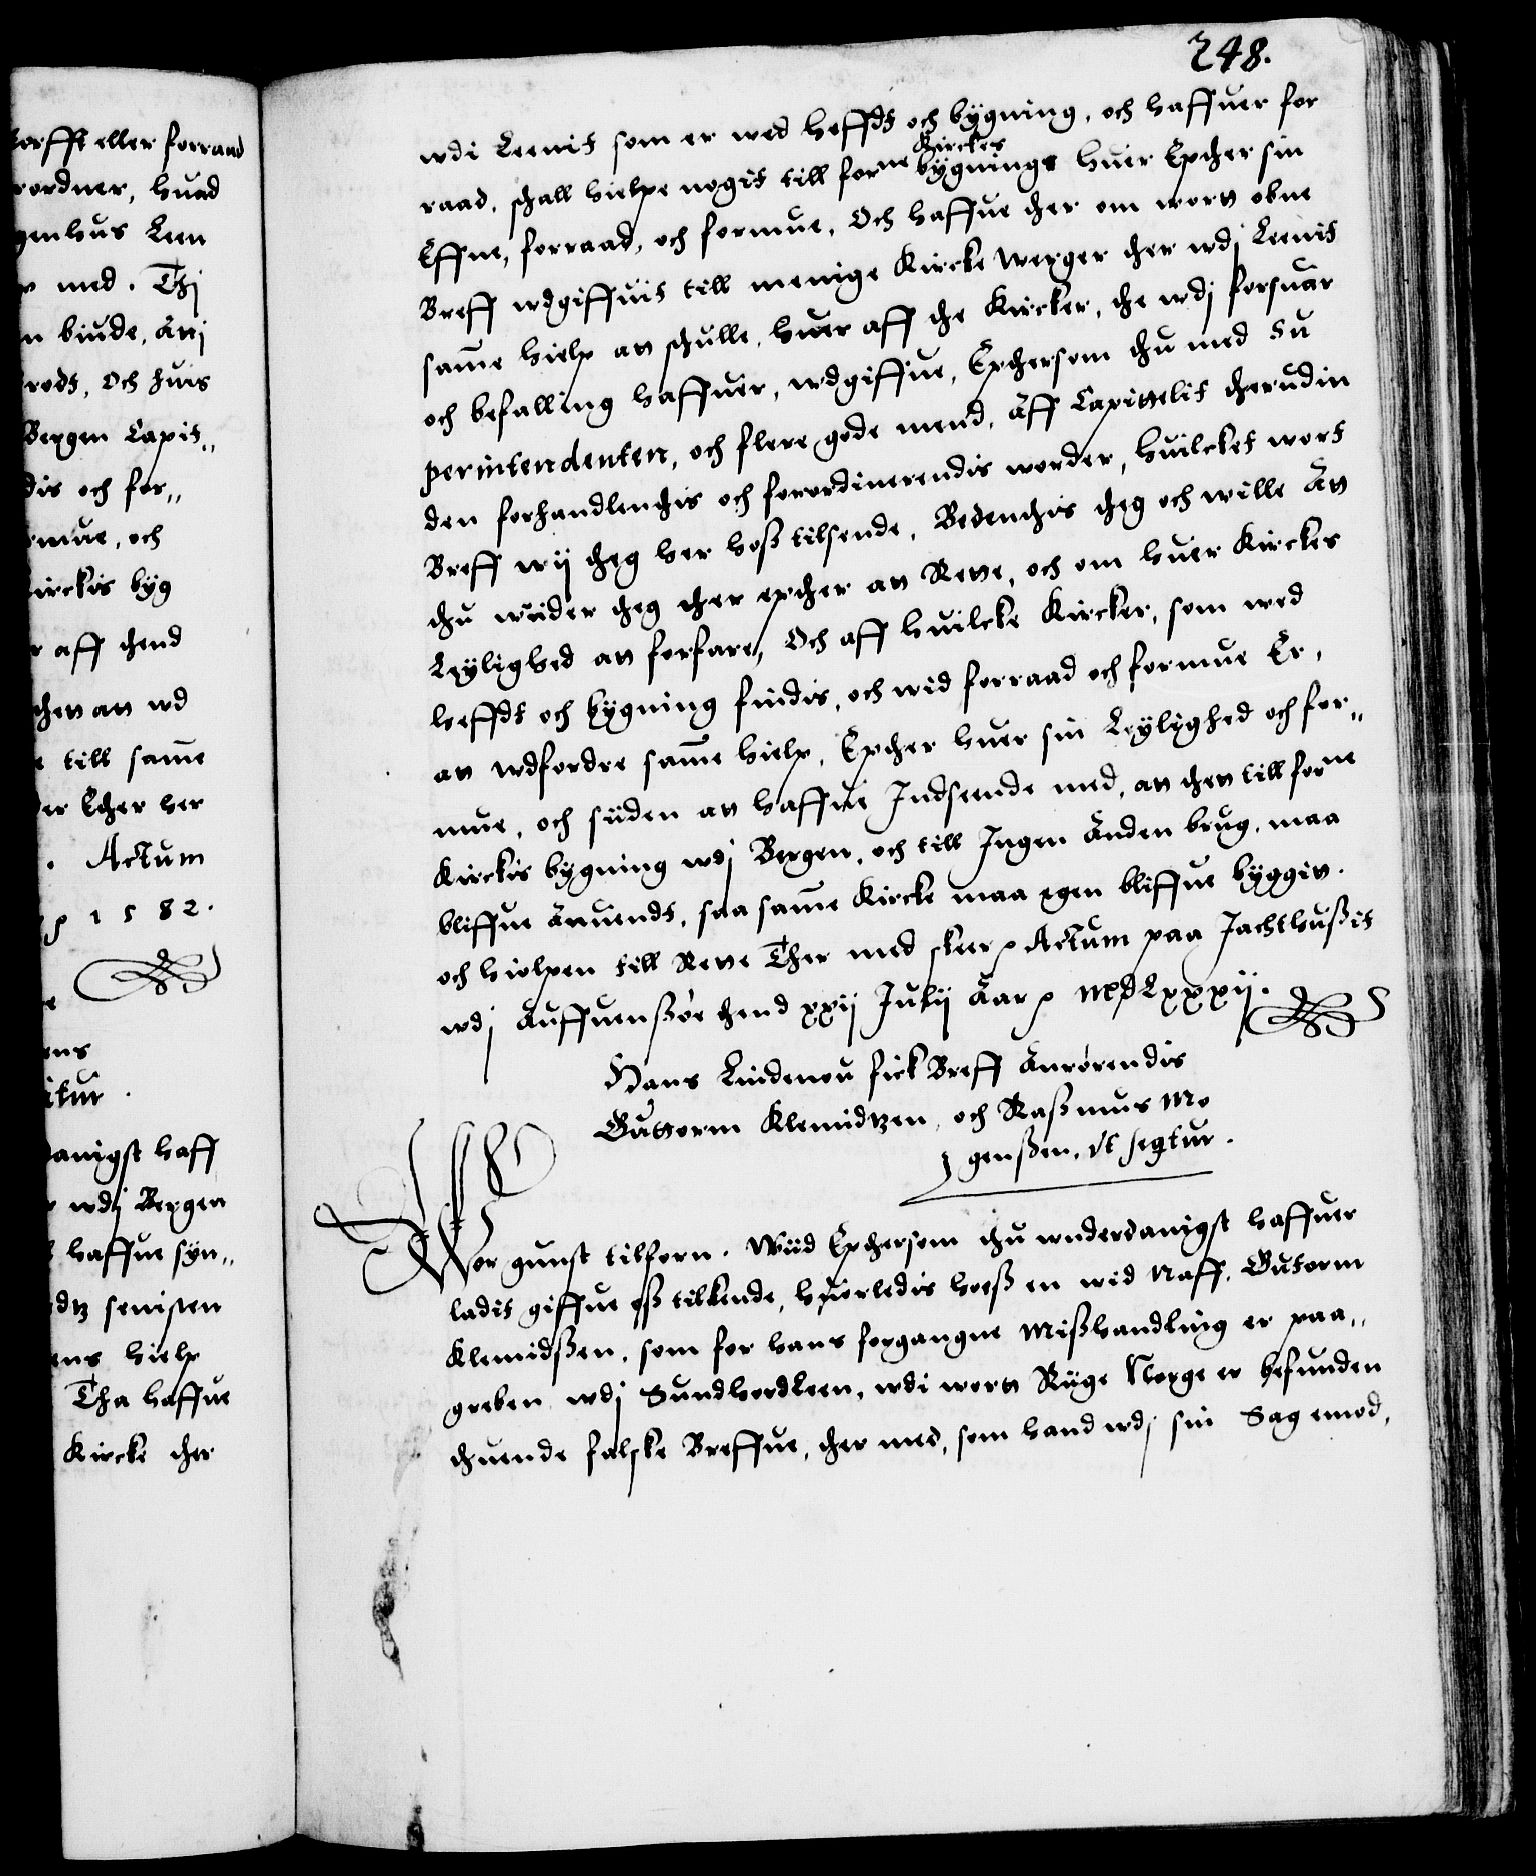 248.
torfft eller forraad
rordner, huad
genhus Leen
r med. Thj
n biude, Atj
rodt, Och huis
Bergen Capit„
dis och for„
rmue, och
irckis byg
r aff thend
then at ud
e till same
der Ether her
. Actum
1582.
ens
itur.
danigst haff
r wdj Bergen
haffue syn„
dtz seniste
ens hielp
Tha haffue
Kircke ther
wdi Leenit som er wed heffdt och bygning, och haffuer for
raad, schall hielpe nogit till forne Kirckes bygninge huer Epther sin
Effne, forraad, och formue, Och haffue ther om wort obne
Breff wdgiffuit till menige Kircke Werger ther wdj Leenit
same hielp att schulle, huer aff the Kircker, the wdj forsuar
och befalling haffuer, wdgiffue, Epthersom thu med Su
perintendenten, och flere gode mend, Aff Capittelit therudin
den forhandlendis och forordinerendis worder, huilcket wort
Breff wij theg her hoß tilsende, Bedendis theg och wille At
thu wiider theg ther epther at Rette, och om huer Kirckes
Leylighed at forfare, Och aff huilcke Kircker, som wed
heffdt och bygning findis, och wid forraad och formue Er,
at wdfordre same hielp, Epther huer sin Leylighed och for„
mue, och siiden at haffue Indseende med, at thet till forne
Kirckis bygning wdj Bergen, och till Ingen Anden brug, maa
bliffue Anuendt, saa same Kircke maa igen bliffue byggit.
och hielpen till Rette Ther med skeer Actum paa Jachthußit
wdj Auffuensøe thend xxij Julij Aar MDLxxxij.
Hans Lindenou fick Breff Anrørendis
Guttorm Klemidtzen, och Rasmus Mo
genßen, Vt seqtur.
Wor gunst tilforn. Wiid Epthersom thu wnderdanigst haffuer
ladit giffue oß tilkende, huorledis hoeß en wid Naff. Gutorm
Klemidßen, som for hans forgangne Mißhandling er paa„
greben wdj Sundhordleen, wdi wort Riige Norge er befunden
thuende falske Breffue, ther med, som hand wdj sin Sag emod,